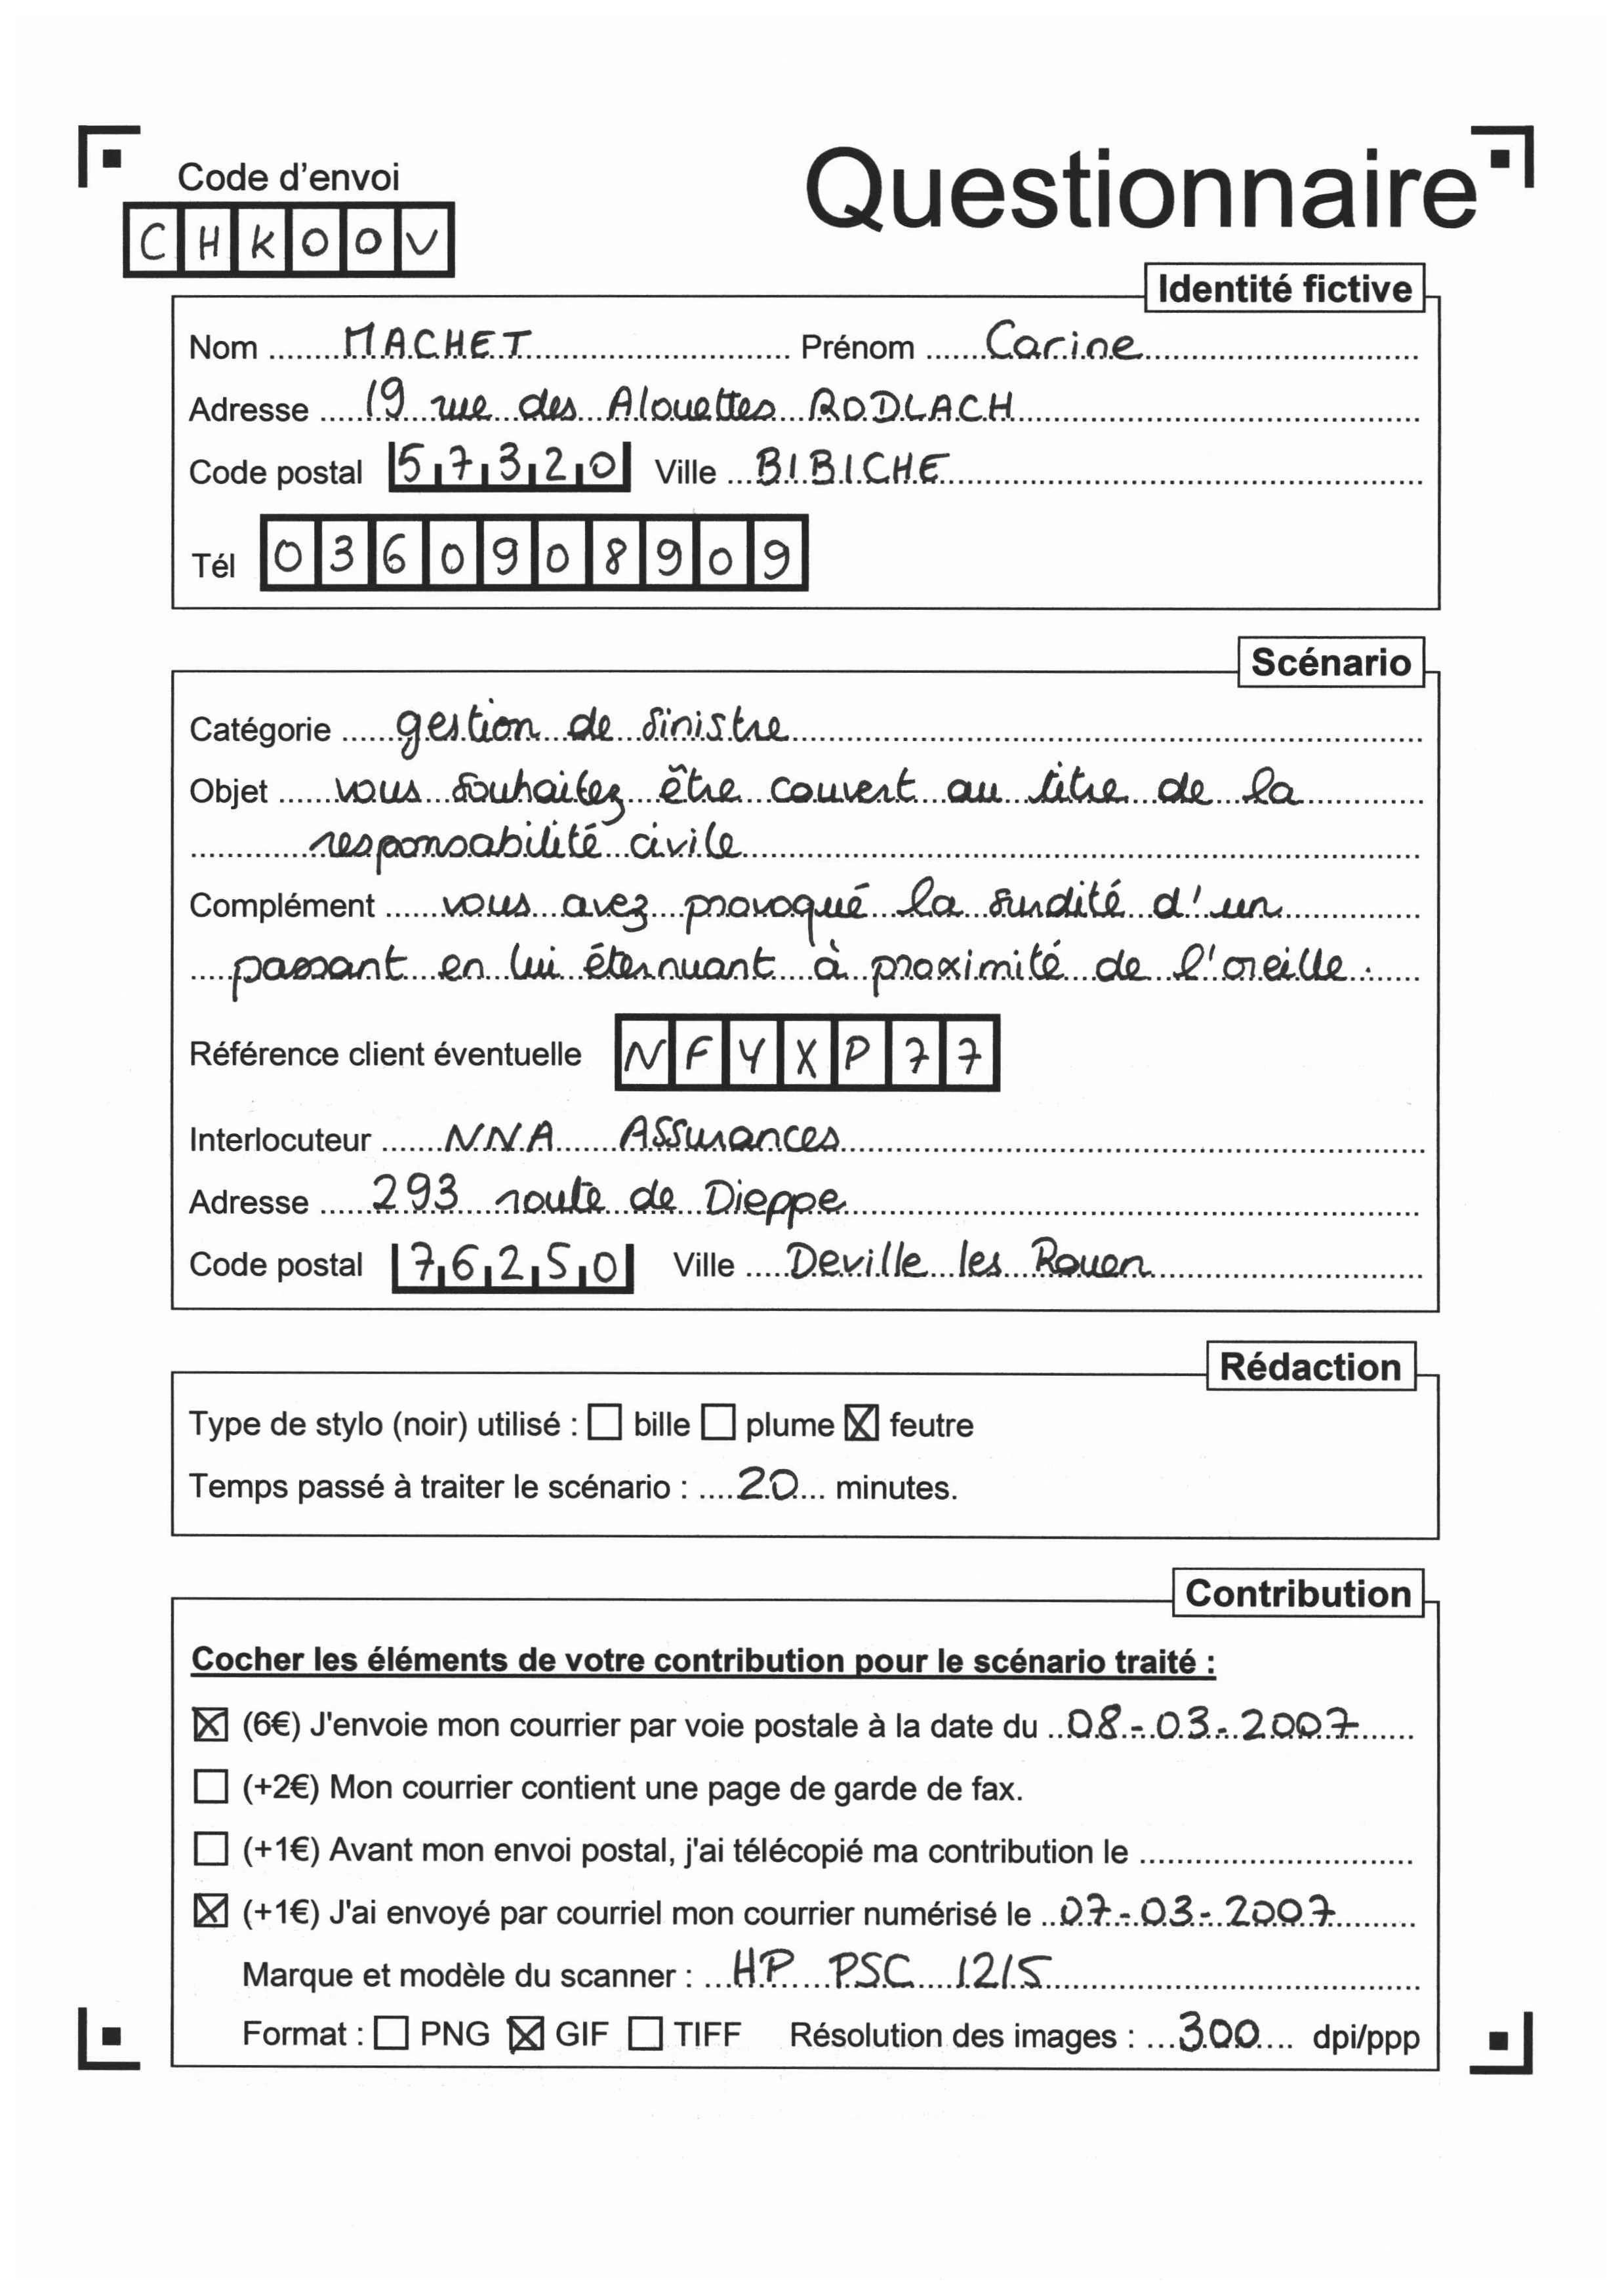 Code d'envoi
CHKOOV
Questionnaire
Identité fictive
Nom MACHET Prénom Carine
Adresse 19 rue des Alouettes RODLACH
Code postal 57320 Ville BIBICHE
Tél 0360908909
Scénario
Catégorie gestion de sinistre
Objet vous souhaitez être couvert au titre de la
responsabilité civile
Complément vous avez provoqué la surdité d'un
passant en lui éternuant à proximité de l'oreille.
Référence client éventuelle NFYXP77
Interlocuteur NNA Assurances
Adresse 293 route de Dieppe
Code postal 76250 Ville Deville les Rouen
Rédaction
Type de stylo (noir) utilisé : bille plume feutre
Temps passé à traiter le scénario : 20 minutes.
Contribution
Cocher les éléments de votre contribution pour le scénario traité :
(6€) J'envoie mon courrier par voie postale à la date du 08-03-2007
(+2€) Mon courrier contient une page de garde de fax.
(+1€) Avant mon envoi postal, j'ai télécopié ma contribution le
(+1€) J'ai envoyé par courriel mon courrier numérisé le 07-03-2007
Marque et modèle du scanner : HP PSC 1215
Format : PNG GIF TIFF Résolution des images : 300 dpi/ppp